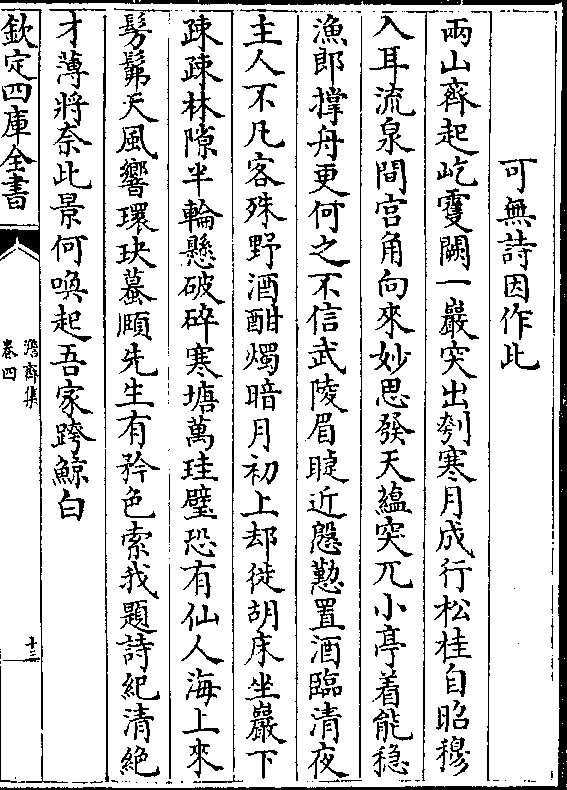 可無詩因作此
兩山齊起屹雙闕一巖突出刳寒月成行松桂自昭穆
入耳流泉間宫角向來妙思發天蘊突兀小亭着能穏
漁郎撑舟更何之不信武陵眉睫近慇懃置酒臨清夜
主人不凡客殊野酒酣燭暗月初上却徙胡床坐巖下
疎疎林隙半輪懸破碎寒塘萬珪璧恐有仙人海上來
髣髴天風響環玦蠆順先生有矜色索我題詩紀清絶
才薄將奈此景何喚起吾家跨鯨白
欽定四庫全書
澹齋集
卷四
十三